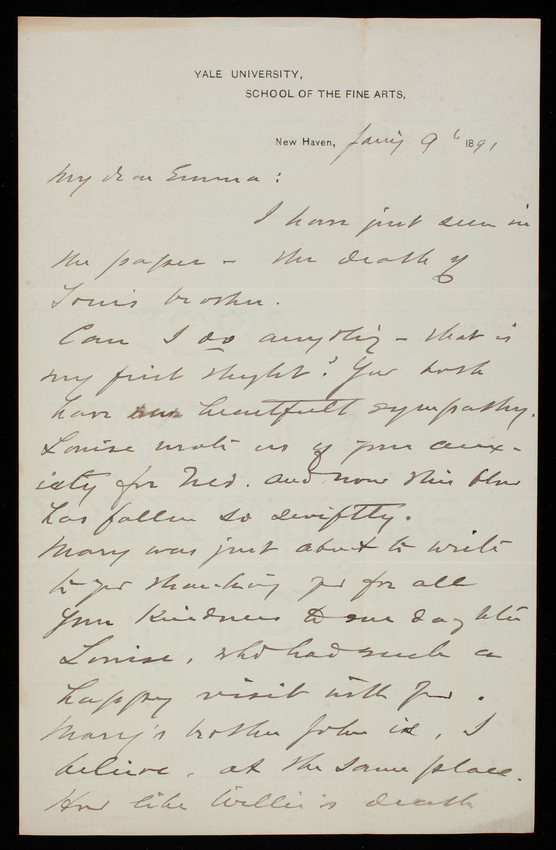 YALE UNIVERSITY,
SCHOOL OF THE FINE ARTS,
New Haven, 9 1891
My dear Emma:
I have just seen in
the paper – the death of
Tom's brother.
Can I do anything – that is
my first thought? You both
have our heartfelt sympathy.
Louise wrote us of your anx-
iety for Ned. and now this blow
has fallen so swiftly.
Mary was just about to write
to you thanking you for all
your kindness to our daughter
Louise, who had such a
happy visit with you.
Mary's brother John is, I
believe, at the same place.
How like Willie's death